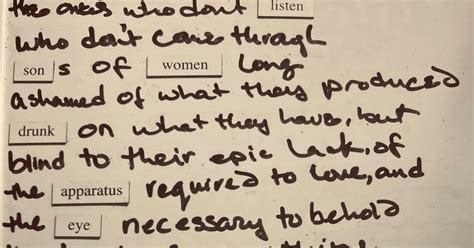 the ones who don't listen
who don't come through
sons of women long
ashamed of what they produced
drunk on what they have, but
blind to their epic lack, of
the apparatus required to love, and
the eye necessary to behold